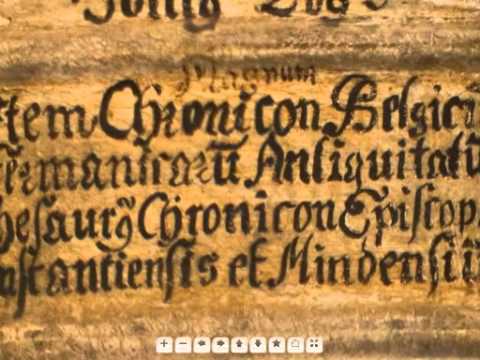 Magnum
Item Chronicon Belgic
Germanicarū Antiquitatū
hesaurꝰ Chronicon Episcop
nstantiensis et Mindensiū